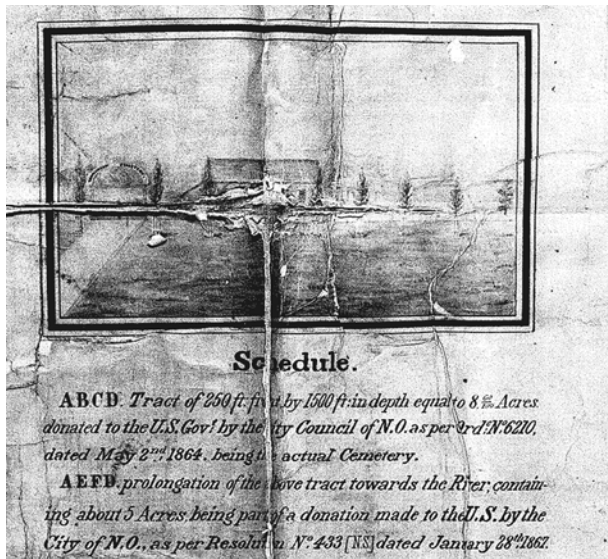 Schedule.
ABCD. Tract of 250 ft. front by 1500 ft: in depth equal to 8. Acres.
donated to the U.S. Govt. by the City Council of N.O. as per Ord. No. 6210,
dated May 2nd. 1864. being the actual Cemetery.
AEFD. prolongation of the above tract towards the River, contain-
ing about 5 Acres, being part of a donation made to the U.S. by the
City of N.O., as per Resolution No. 433 [NS] dated January 28th 1867.